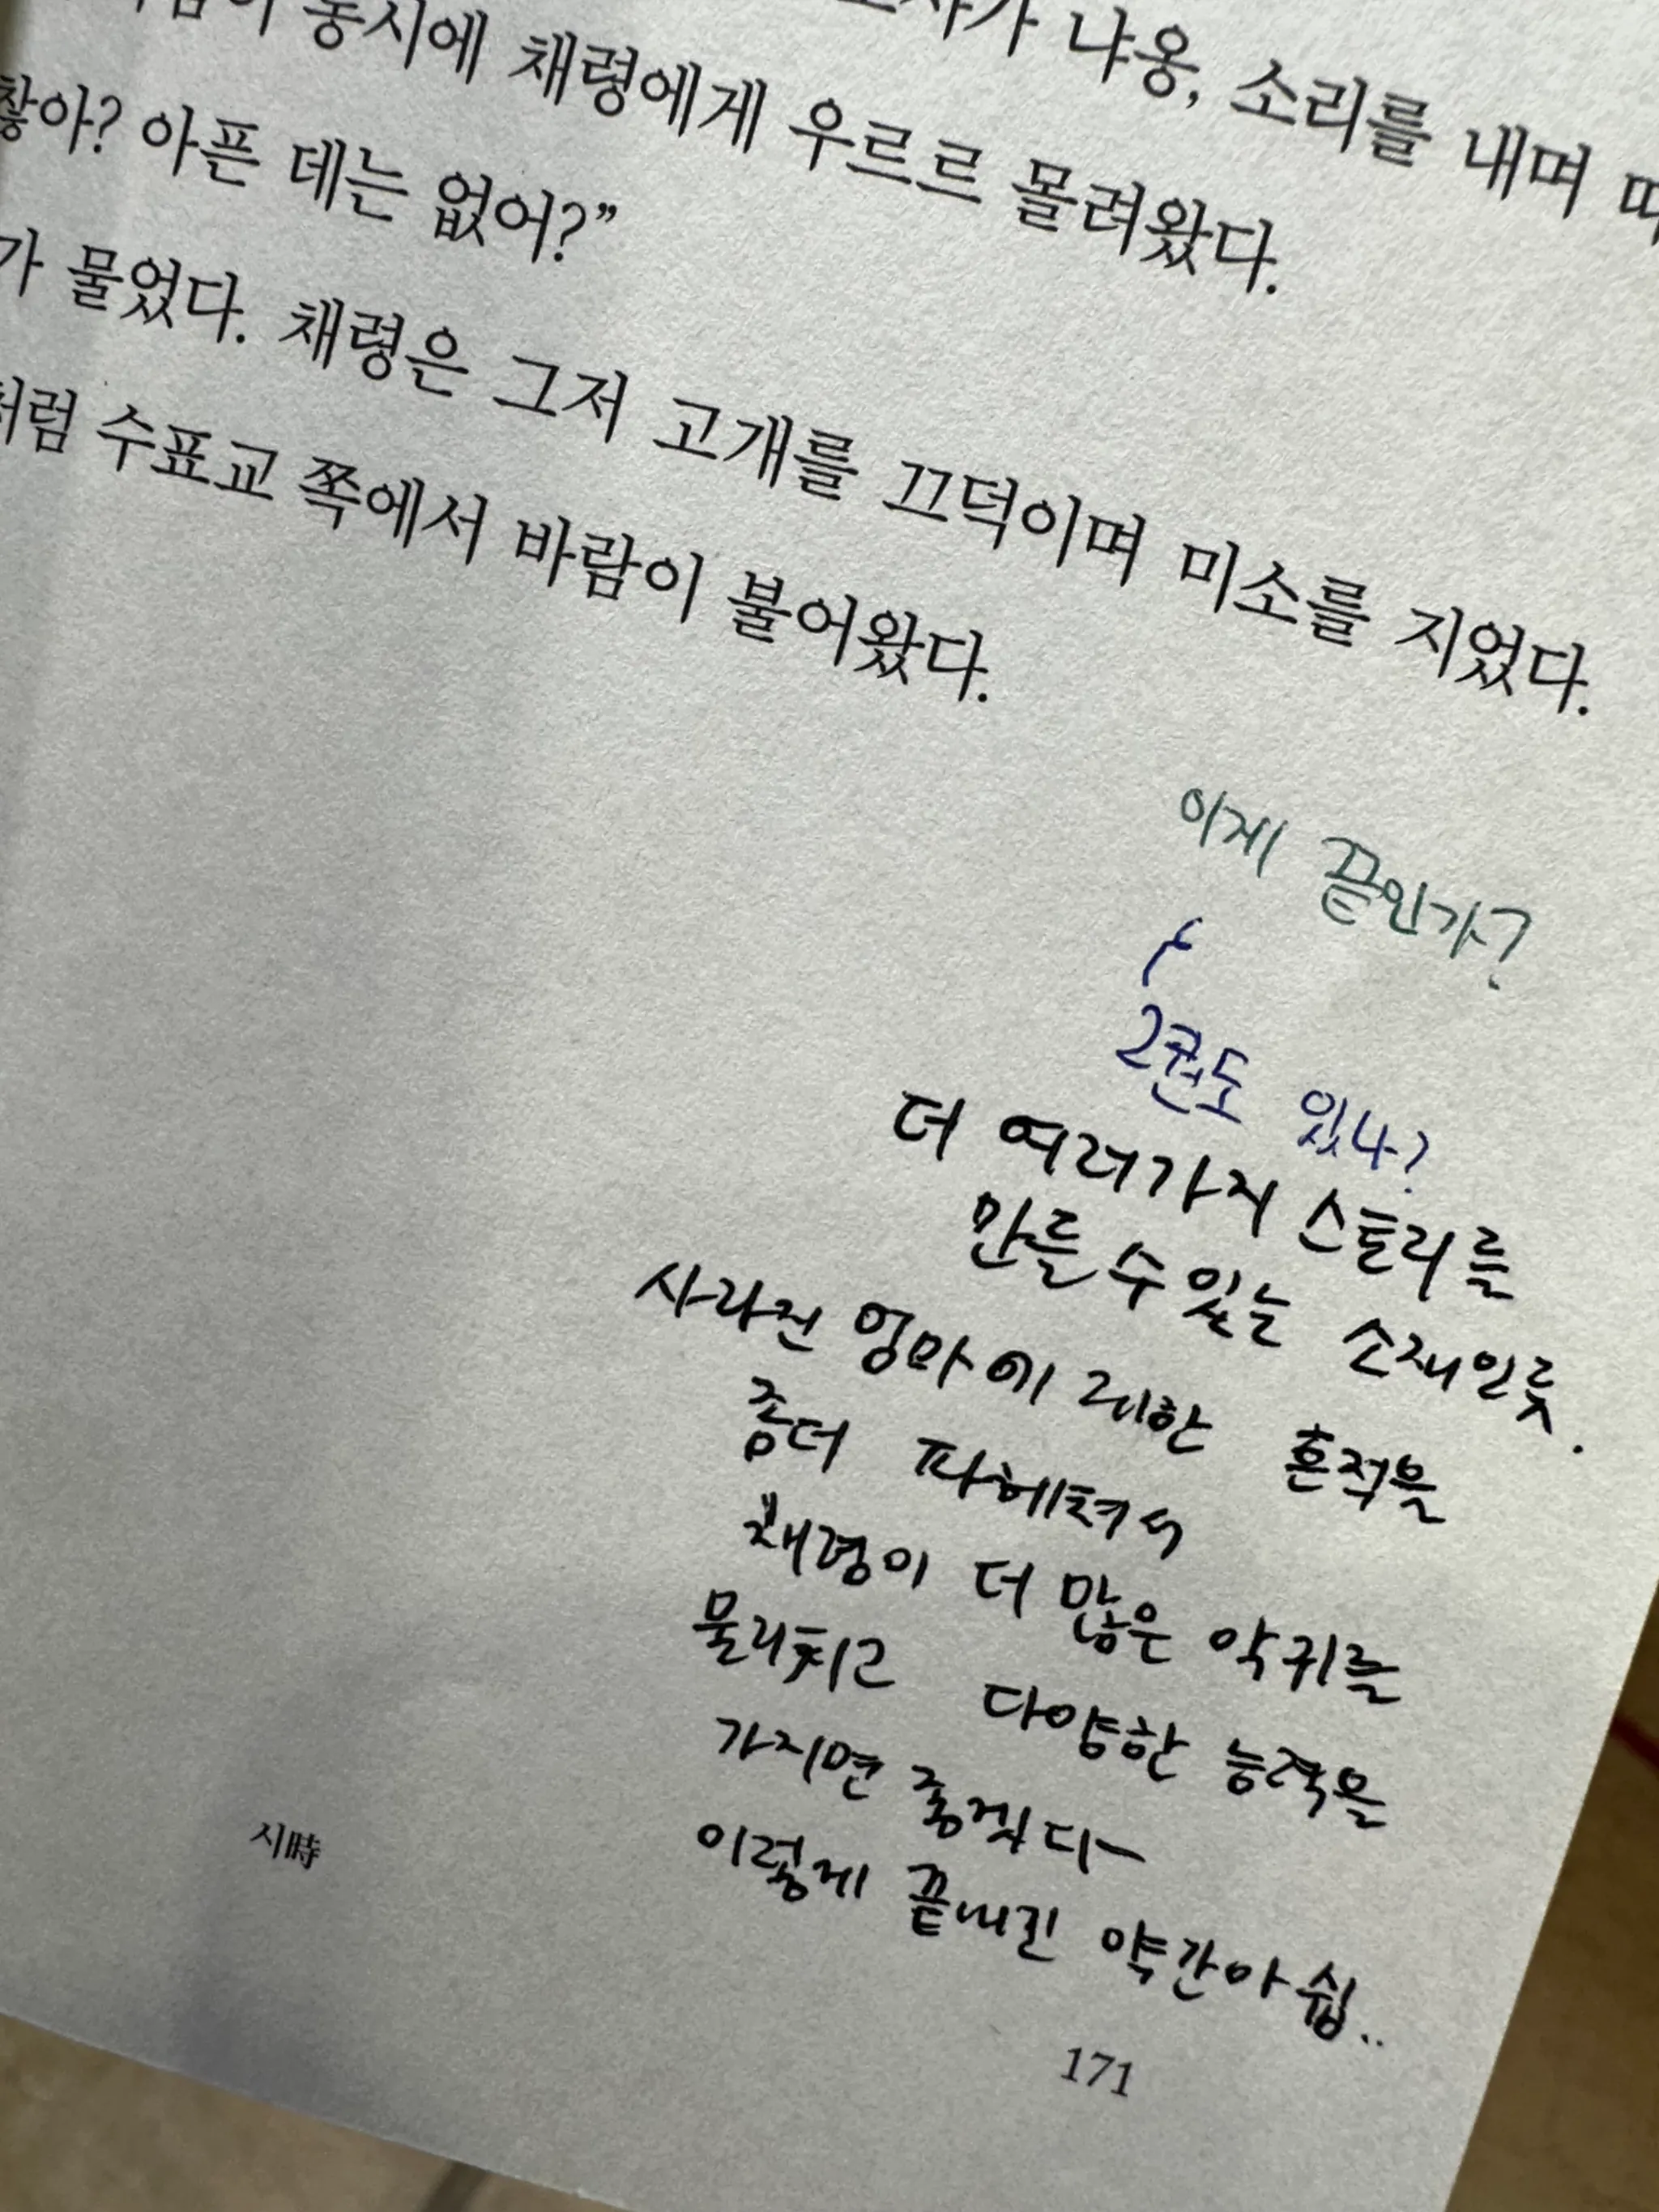 동시에 채령에게 우르르 몰려왔다.
냐옹, 소리를 내며
찮아? 아픈 데는 없어?”
가 물었다. 채령은 그저 고개를 끄덕이며 미소를 지었다.
처럼 수표교 쪽에서 바람이 불어왔다.
이게 끝인가?
2권도 있나?
더 여러가지 스토리를
만들 수 있는 소재인듯.
사라진 엄마에 대한 흔적을
좀더 파헤쳐서
채령이 더 많은 악귀를
물리치고 다양한 능력을
가지면 좋겠다ㅡ
이렇게 끝내긴 약간아쉽..
시時
171